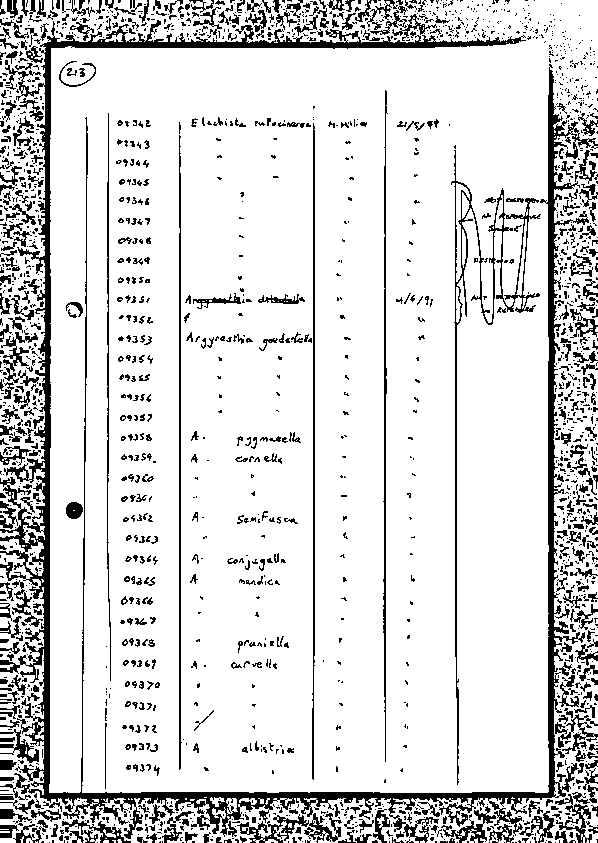 213
09342 Elachista rufocinerea M. Hull 21/5/
09343 " " " "
09344 " " " "
09345 " " " "
09346 " " "
09347 " " "
09348 " " "
09349 " " " DESTROYED
09350 " " "
09351 Argyresthia " 4/6/91
09352 " " "
09353 Argyresthia goedartella " "
09354 " " " "
09355 " " " "
09356 " " " "
09357 " " " "
09358 A. pygmaeella " "
09359 A. cornella " "
09360 " " " "
09361 " " " "
09362 A. semifusca " "
09363 " " " "
09364 A. conjugella " "
09365 A mendica " "
09366 " " " "
09367 " " " "
09368 " pruniella " "
09369 A. curvella " "
09370 " " " "
09371 " " " "
09372 " " " "
09373 A albistria " "
09374 " " " "